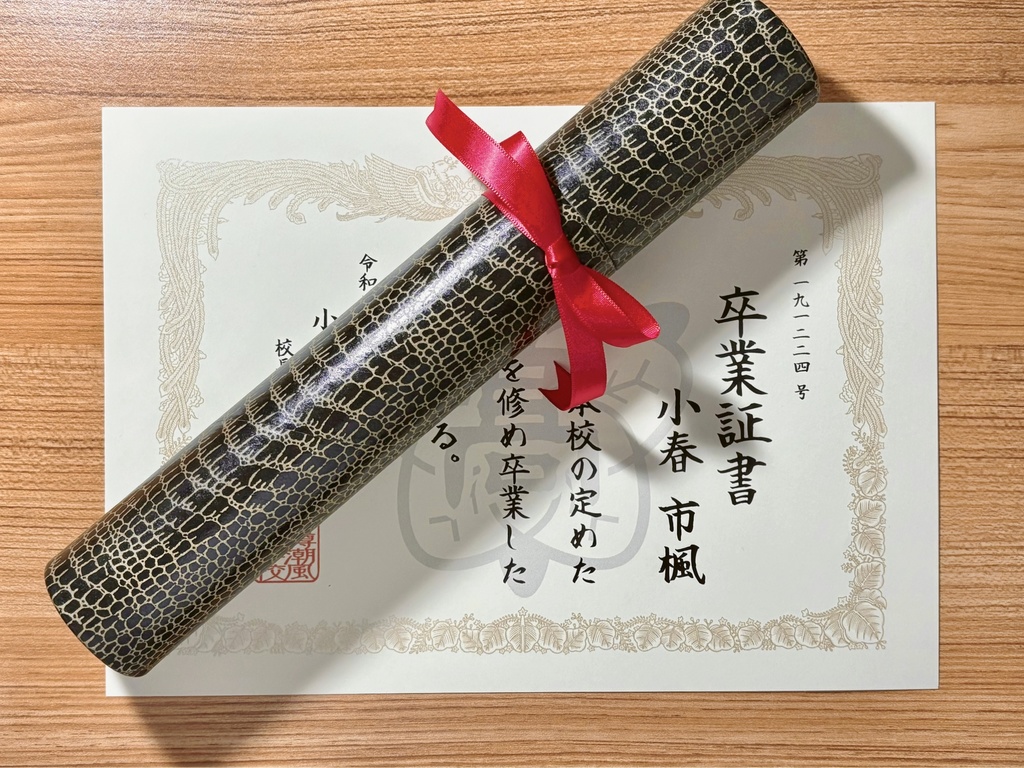 第一九一二二四号
卒業証書
小春 市楓
本校の定めた
を修め卒業した
る。
令和
小
校
潮風
校